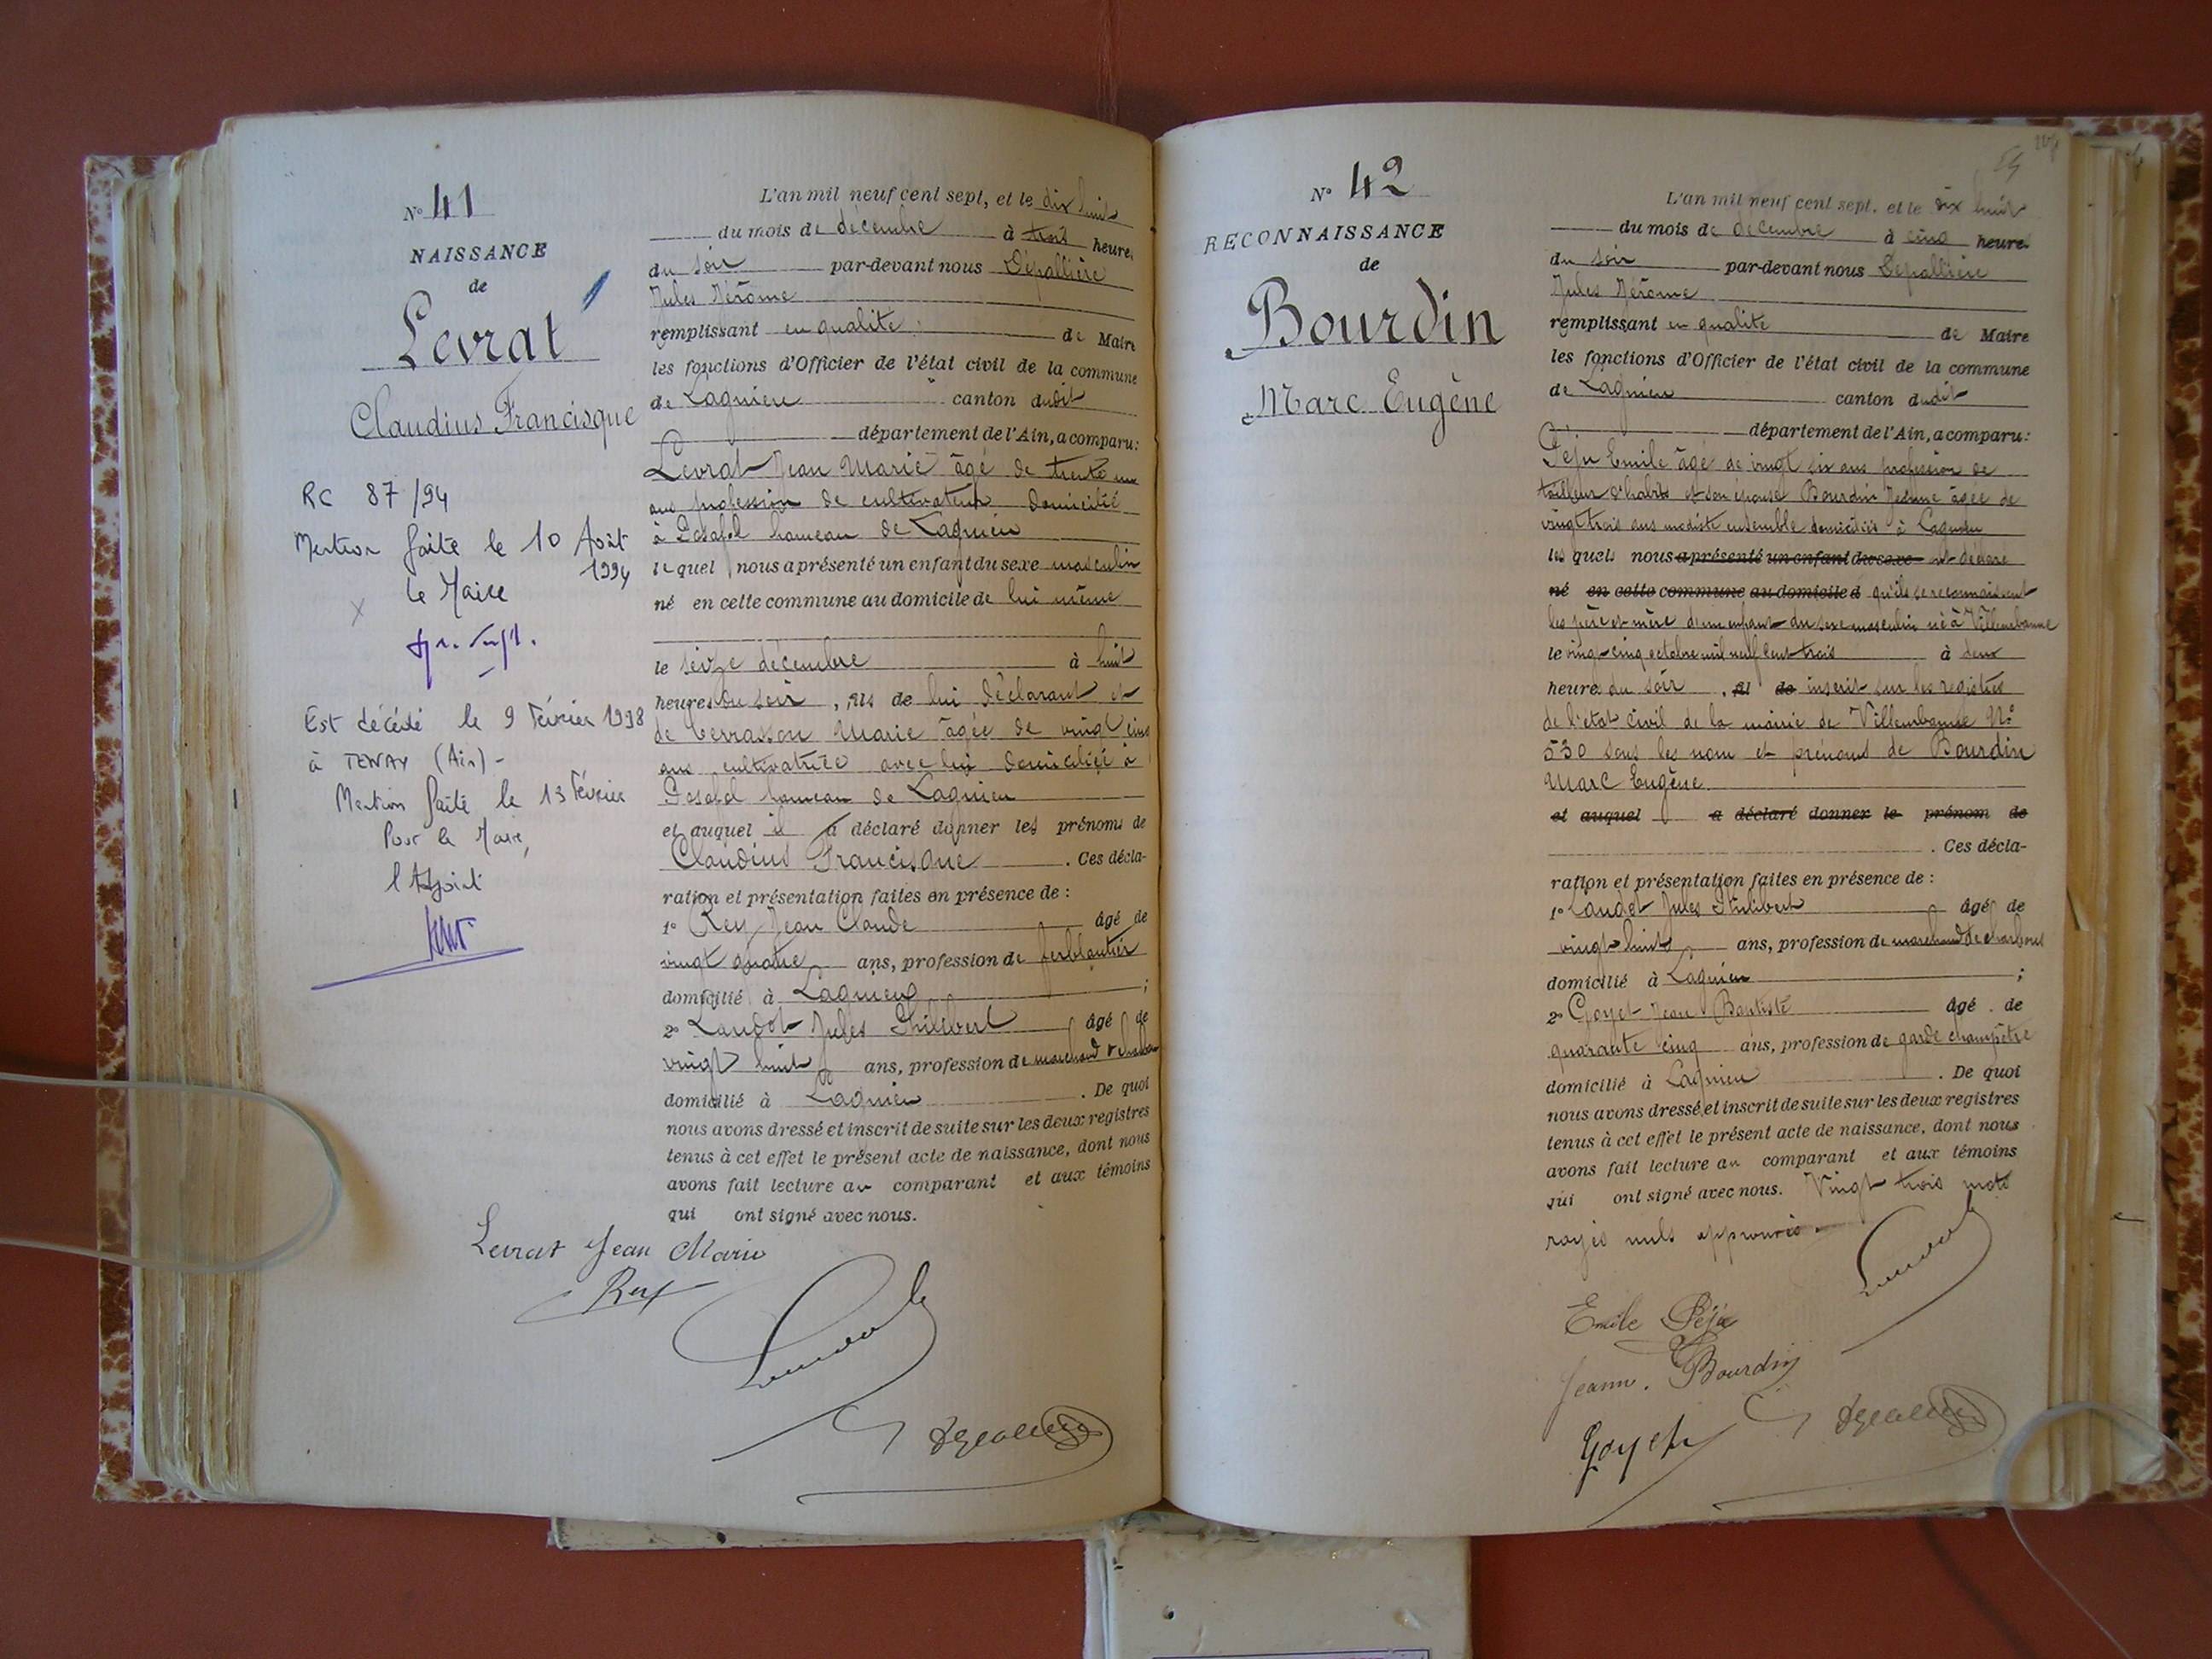 N° 41
NAISSANCE
de
Levrat
Claudius Francisque
RC 87/94
Mention faite le 10 Août
1994
le Maire
Est décédé le 9 Février 1998
à TENAY (Ain) -
Mention faite le 13 Février
Pour le Maire,
l'Adjoint
L'an mil neuf cent sept, et le dix huit
du mois de décembre à trois heures
du soir par-devant nous Dépallière
Jules Jérôme
remplissant en qualité de Maire
les fonctions d'Officier de l'état civil de la commune
de Lagnieu canton dudit
département de l'Ain, a comparu:
Levrat Jean Marie âgé de trente un
ans profession de cultivateur domicilié
à hameau de Lagnieu
le quel nous a présenté un enfant du sexe masculin
né en cette commune au domicile de lui même
le seize décembre à huit
heures du soir, fils de lui déclarant et
de Marie âgée de vingt cinq
ans cultivatrice avec lui domiciliée à
hameau de Lagnieu
et auquel il a déclaré donner les prénoms de
Claudius Francisque. Ces décla-
ration et présentation faites en présence de :
1° Rey Jean Claude âgé de
vingt quatre ans, profession de ferblantier
domicilié à Lagnieu ;
2° Laudot Jules Philibert âgé de
vingt huit ans, profession de marchand de charbon
domicilié à Lagnieu. De quoi
nous avons dressé et inscrit de suite sur les deux registres
tenus à cet effet le présent acte de naissance, dont nous
avons fait lecture au comparant et aux témoins
qui ont signé avec nous.
Levrat Jean Marie
Rey
N° 42
RECONNAISSANCE
de
Bourdin
Marc Eugène
54
L'an mil neuf cent sept, et le dix huit
du mois de décembre à cinq heures
du soir par-devant nous Dépallière
Jules Jérôme
remplissant en qualité de Maire
les fonctions d'Officier de l'état civil de la commune
de Lagnieu canton dudit
département de l'Ain, a comparu:
Péju Emile âgé de vingt six ans profession de
tailleur d'habits et son épouse Bourdin Jeanne âgée de
vingt trois ans modiste ensemble domiciliés à Lagnieu
les quels nous a présenté un enfant du sexe ont déclaré
né en cette commune au domicile d qu'ils se reconnaissent
les père et mère d'un enfant du sexe masculin né à Villeurbanne
le vingt-cinq octobre mil neuf cent trois à deux
heures du soir, fil de inscrit sur les registres
de l'état civil de la mairie de Villeurbanne N°
530 sous les nom et prénoms de Bourdin
Marc Eugène.
et auquel a déclaré donner le prénom de
. Ces décla-
ration et présentation faites en présence de :
1° Laudot Jules Philibert âgé de
vingt-huit ans, profession de marchand de charbons
domicilié à Lagnieu ;
2° Goyet Jean Baptiste âgé de
quarante cinq ans, profession de garde champêtre
domicilié à Lagnieu. De quoi
nous avons dressé et inscrit de suite sur les deux registres
tenus à cet effet le présent acte de naissance, dont nous
avons fait lecture au comparant et aux témoins
qui ont signé avec nous. Vingt trois mots
rayés nuls approuvés
Emile Péju
Jeanne. Bourdin
Goyet